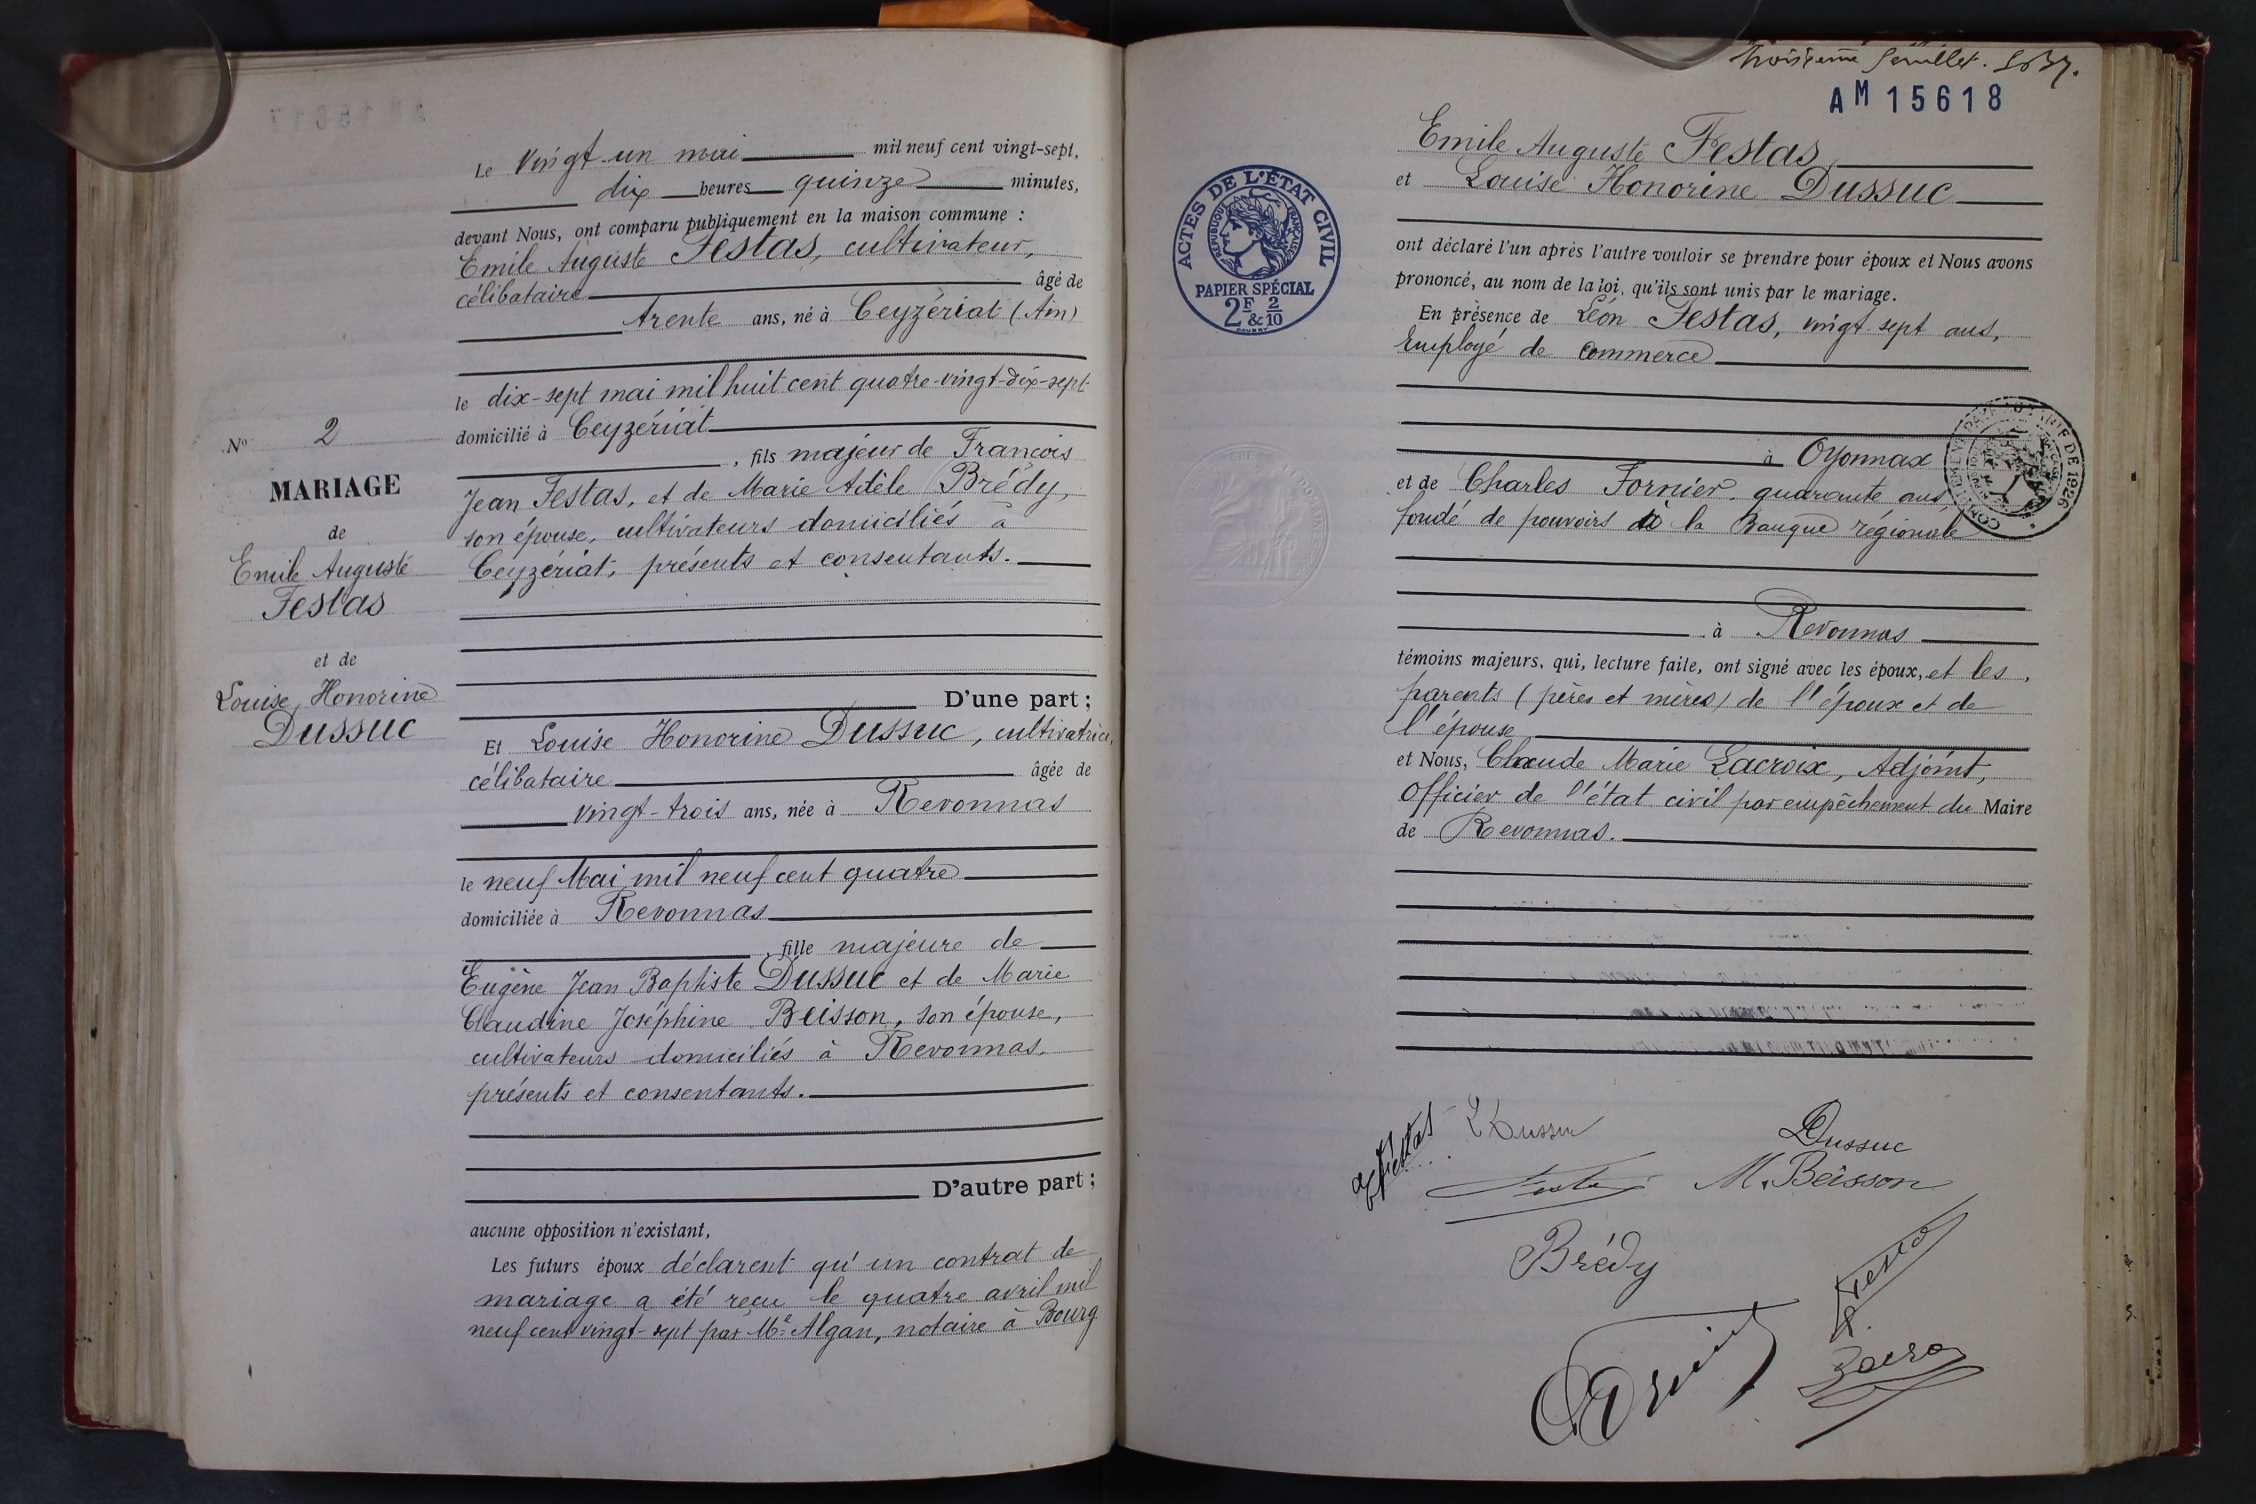 Le vingt-un mai mil neuf cent vingt-sept,
dix heures quinze minutes,
devant Nous, ont comparu publiquement en la maison commune :
Emile Auguste Festas, cultivateur,
célibataire âgé de
trente ans, né à Ceyzériat (Ain)
le dix-sept mai mil huit cent quatre-vingt-dix-sept
domicilié à Ceyzériat
, fils majeur de François
Jean Festas, et de Marie Adèle Brédy,
son épouse, cultivateurs domiciliés à
Ceyzériat, présents et consentants.
D'une part ;
Et Louise Honorine Dussuc, cultivatrice,
célibataire âgée de
vingt-trois ans, née à Revonnas
le neuf Mai mil neuf cent quatre
domiciliée à Revonnas
, fille majeure de
Eugène Jean Baptiste Dussuc et de Marie
Claudine Joséphine Beisson, son épouse,
cultivateurs domiciliés à Revonnas,
présents et consentants.
D'autre part ;
aucune opposition n'existant,
Les futurs époux déclarent qu'un contrat de
mariage a été reçu le quatre avril mil
neuf cent vingt-sept par Me Algan, notaire à Bourg
No 2
MARIAGE
de
Emile Auguste
Festas
et de
Louise Honorine
DUSSUC
Troisième feuillet.
AM 15618
Emile Auguste Festas
et Louise Honorine Dussuc
ont déclaré l'un après l'autre vouloir se prendre pour époux et Nous avons
prononcé, au nom de la loi, qu'ils sont unis par le mariage.
En présence de Léon Festas, vingt-sept ans,
employé de commerce
à Oyonnax
et de Charles Fornier, quarante ans,
fondé de pouvoirs à la Banque régionale
à Revonnas
témoins majeurs, qui, lecture faite, ont signé avec les époux, et les
parents (pères et mères) de l'époux et de
l'épouse
et Nous, Claude Marie Lacroix, Adjoint,
Officier de l'état civil par empêchement du Maire
de Revonnas.
ACTES DE L'ÉTAT CIVIL
RÉPUBLIQUE FRANÇAISE
PAPIER SPÉCIAL
2F & 2/10
DE 1926
L Dussuc
Dussuc
M. Beisson
Brédy